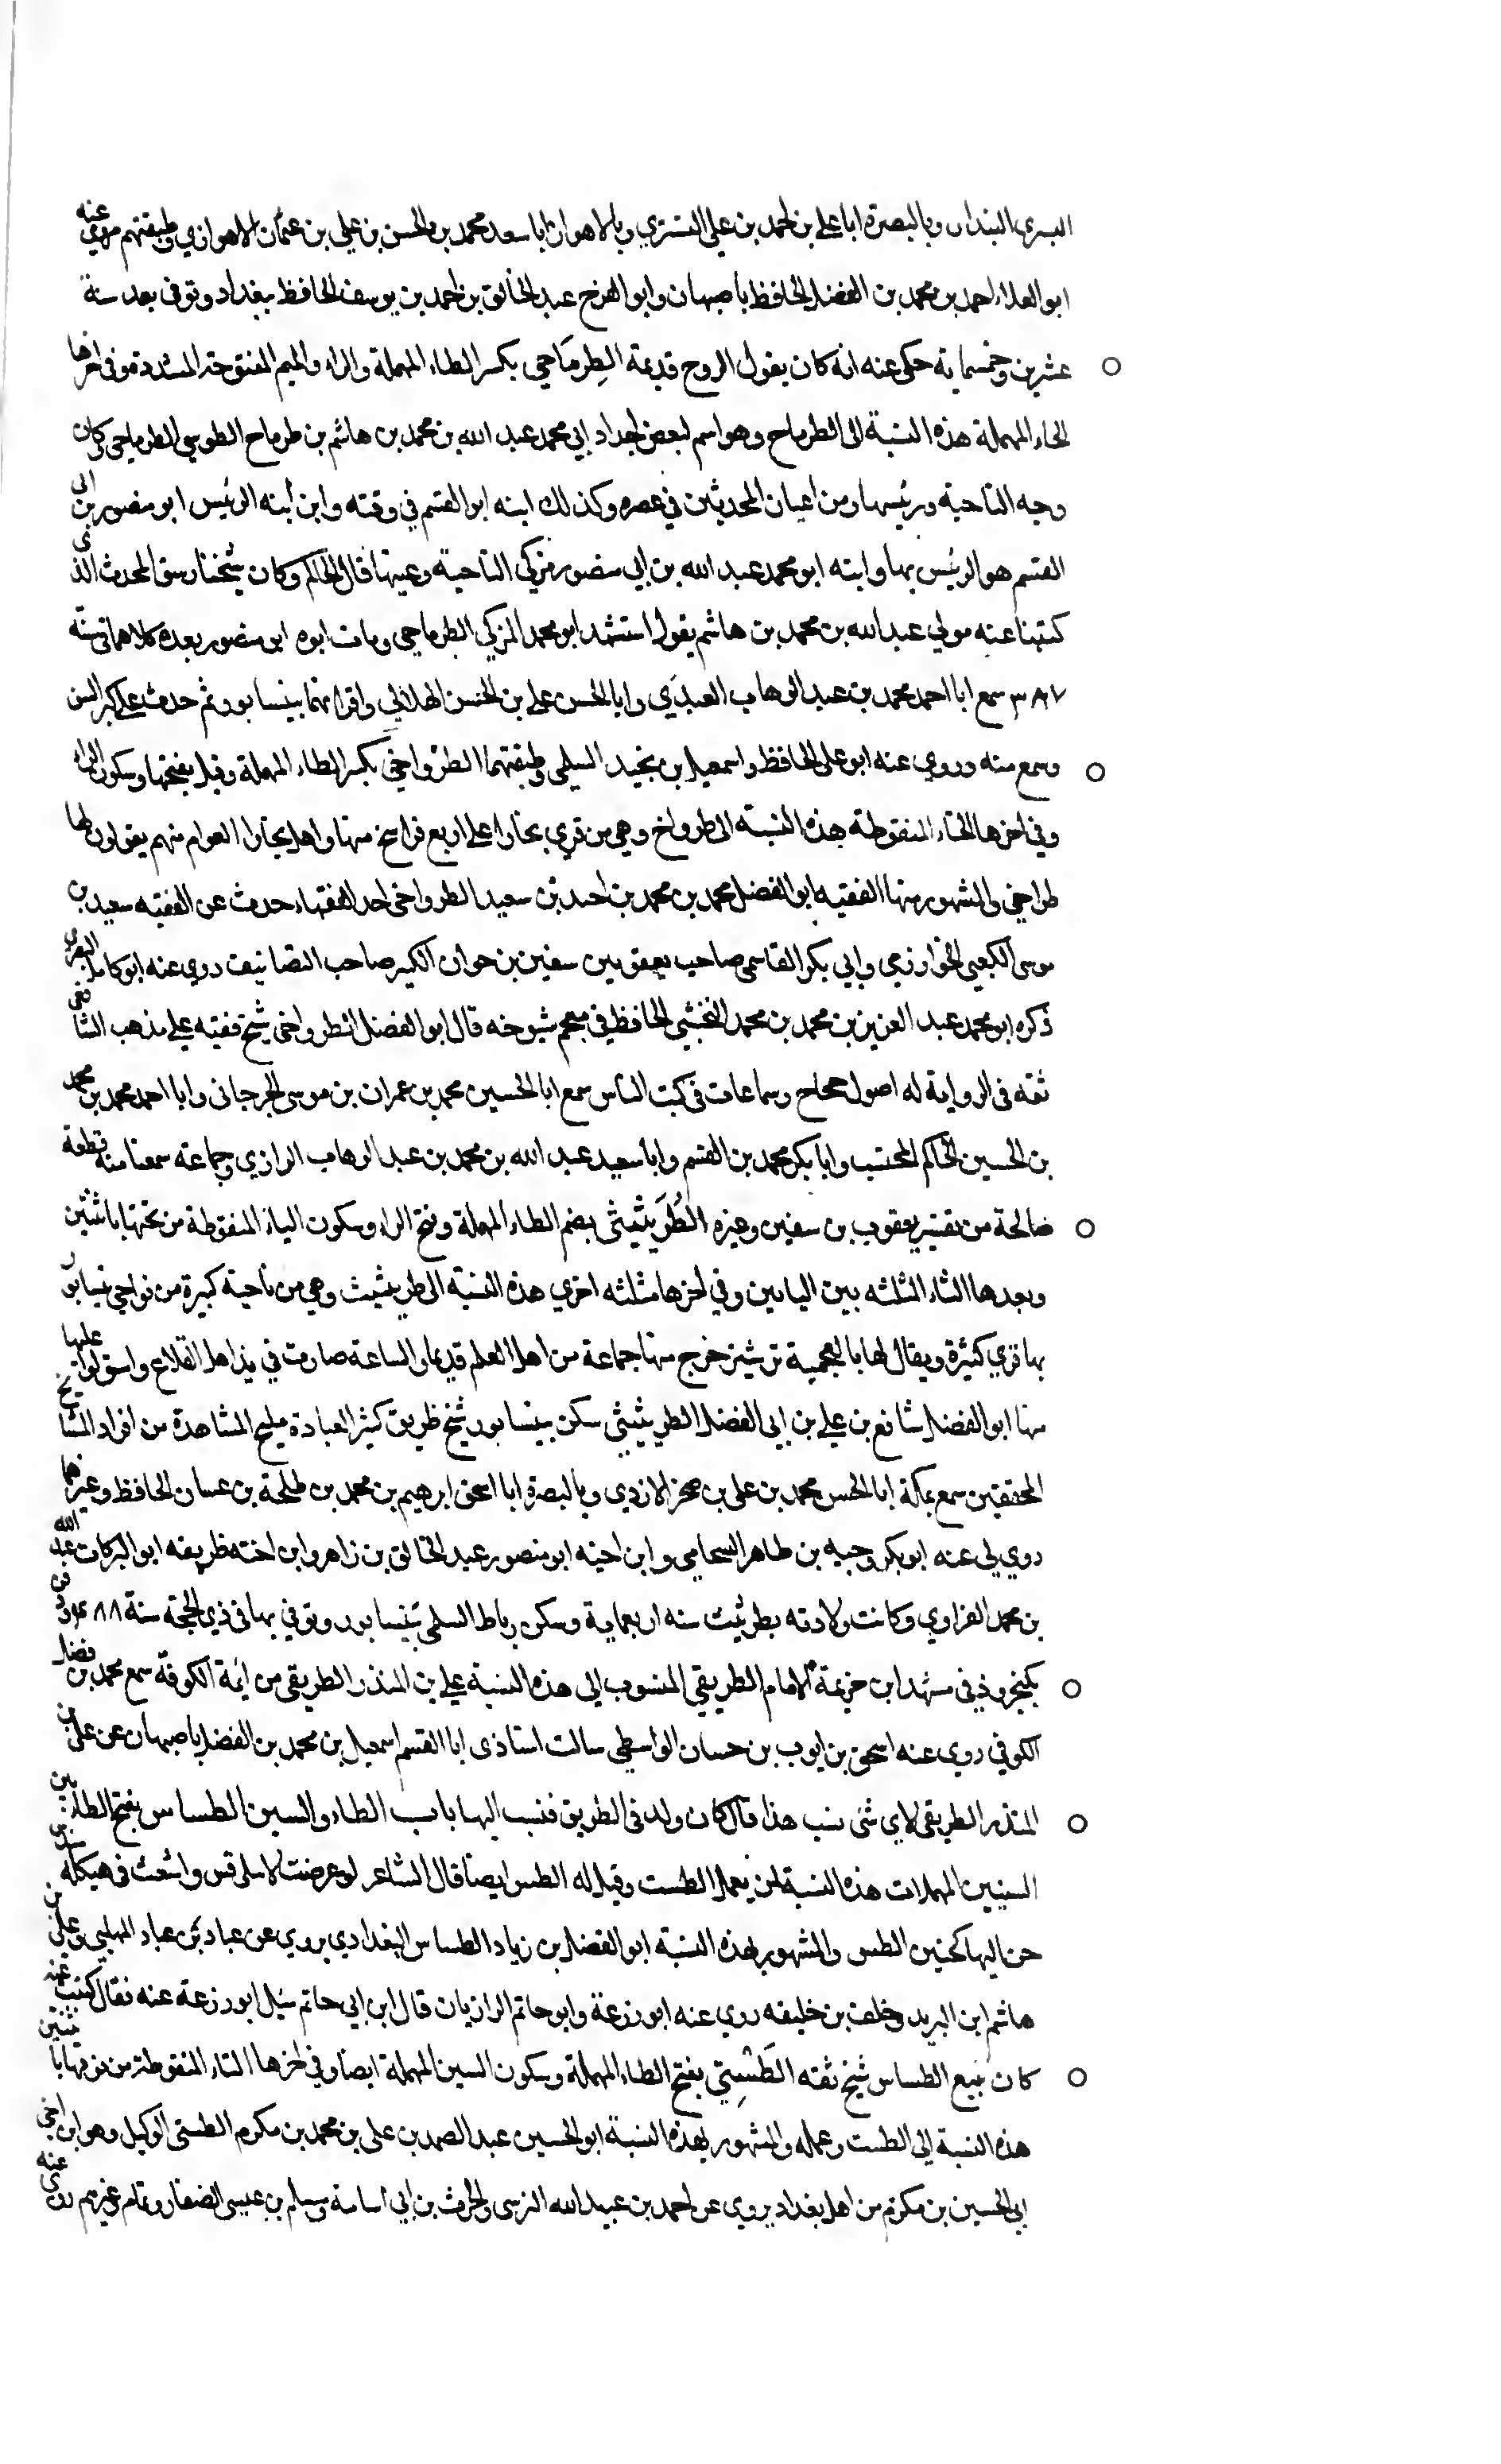 البسري البندار وبالبصرة ابا علي بن احمد بن علي التستري وبالاهواز ابا سعد محمد بن الحسن بن علي بن عثمان الاهوازي وطبقتهم روى عنه
ابو العلاء احمد بن محمد بن الفضل الحافظ باصبهان وابو الفرج عبد الخالق بن احمد بن يوسف الحافظ ببغداد وتوفي بعد سنة
عشرين وخمسماية حكى عنه انه كان يقول الروح قديمة الطِرِمَاحي بكسر الطاء المهملة والراء والميم المفتوحة المشددة وفي اخرها
الحاء المهملة هذه النسبة الى الطرماح وهو اسم لبعض اجداد ابي محمد عبد الله بن محمد بن هاشم بن طرماح الطوسي الطرماحي وكان
وجه الناحية ورئيسها ومن اعيان المحدثين في عصره وكذلك ابنه ابو القسم في وقته وابن ابنه الرئيس ابو منصور بن ابي
القسم هو الرئيس بها وابنه ابو محمد عبد الله بن ابي منصور مزكي الناحية وعينها قال الحاكم وكان شيخنا رستق المحدث الذي
كتبنا عنه مولي عبد الله بن محمد بن هاشم يقول استشهد ابو محمد المزكي الطرماحي ومات ابوه ابو منصور بعده كلاهما في سنة
٣٨٧ سمع ابا احمد محمد بن عبد الوهاب العبدَي وابا الحسن علي بن الحسن الهلالي واقرانهما بنيسابور ثم حدث على كبر السن
وسمع منه وروي عنه ابو علي الحافظ واسمعيل بن نجيد السلمي وطبقتهما الطرْواخي بكسر الطاء المهملة وقيل بفتحها وسكون الراء
وفي اخرها الخاء المنقوطة هذه النسبة الى طرواخ وهي من قري بخارا على اربع فراسخ منها واهل بخارا العوام منهم يقولون لها
طراخي والمشهور منها الفقيه ابو الفضل محمد بن محمد بن احمد بن سعيد الطرواخي احد الفقهاء حدث عن الفقيه سعيد بن
موسى الكبعي الخوارزمي وابي بكر القاسمي صاحب يعقوب بن سفين بن حوان الكبير صاحب التصانيف روي عنه ابو كامل البصري
ذكره ابو محمد عبد العزيز بن محمد بن محمد النخشبي الحافظ في معجم شيوخه قال ابو الفضل الطرواخي شيخ فقيه على مذهب الشافعي
ثقه في الرواية له اصول صحاح وسماعات في كتب الناس سمع ابا الحسين محمد بن عمران بن موسى الجرجاني وابا احمد محمد بن محمد
بن الحسين الحاكم المحتسب وابا بكر محمد بن القسم وابا سعيد عبد الله بن محمد بن عبد الوهاب الرازي وجماعة سمعنا منه قطعة
صالحة من تفسير يعقوب بن سفين وغيره الطُرَيثيثي بضم الطاء المهملة وفتح الراء وسكون الياء المنقوطة من تحتها باثنتين
وبعدها الثاء المثلثه بين اليائين وفي اخرها مثلثه اخري هذه النسبة الى طريثيث وهي من ناحية كبيرة من نواحي نيسابور
بها قري كثيرة ويقال لها بالعجمية ترشيز خرج منها جماعة من اهل العلم قديما والساعة صارت في يد اهل القلاع واستولوا عليها
منها ابو الفضل شافع بن علي بن ابي الفضل الطريثيثي سكن بنيسابور شيخ ظريف كثير العبادة مليح المشاهدة من افراد المشايخ
المحققين سمع بمكة ابا الحسن محمد بن علي بن صخر الازدي وبالبصرة ابا اسحق ابرهيم بن محمد بن طلحة بن غسان الحافظ وغيرهما
روي لي عنه ابو بكر وجيه بن طاهر الشحامي وابن اخيه ابو منصور عبد الخالق بن زاهر وابن اخته ظريفه ابو البركات عبد الله
بن محمد الفراوي وكانت ولادته بطريثيث سنه اربعماية وسكن رباط السلمي بنيسابور وتوفي بها في ذي الحجة سنة ٤٨٨ ودفن
بكنجروذ في مشهد ابن خزيمة الامام الطريقي المنسوب الى هذه النسبة علي بن المنذر الطريقي من ائمة الكوفة سمع محمد بن فضيل
الكوفي روي عنه اسحق بن ايوب بن حسان الواسطي سالت استاذي ابا القسم اسمعيل بن محمد بن الفضل باصبهان عن علي بن
المنذر الطريقي لاي شي نسب هذا قال كان ولد في الطريق فنسب اليها باب الطاء والسين الطساس بفتح الطاء بين
السينين المهملات هذه النسبة لمن يعمل الطست وقيل له الطس ايضا قال الشاعر لو عرضت لاسلي قس واشعث في هيكله
حن اليها كحنين الطس والمشهور بهذه النسبة ابو الفضل بن زياد الطساس البغدادي يروي عن عباد بن عباد المهلبي وعلي بن
هاشم ابن البريد وخلف بن خليفه روي عنه ابو زرعة وابو حاتم الرازيان قال ابن ابي حاتم سيل ابو زرعة عنه فقال كتبت عنه
كان يبيع الطساس شيخ ثقه الطَسْتي بفتح الطاء المهملة وسكون السين المهملة ايضا وفي اخرها التاء المنقوطة من فوقها باثنتين
هذه النسبة الى الطست وعمله والمشهور بهذه النسبة ابو الحسين عبد الصمد بن علي بن محمد بن مكرم الطستي الوكيل وهو ابن اخي
ابي الحسين بن مكرم من اهل بغداد يروي عن احمد بن عبيد الله النرسي والحرث بن ابي اسامة وسلم بن عيسى الصفار وتمام وغيرهم روى عنه